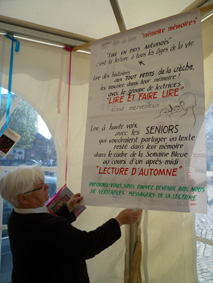 "mémoire mémoires"
"LIRE EN PAYS AUTUNOIS"
c'est la lecture à tous les âges de la vie.
Lire des histoires,
aux TOUT PETITS de la crèche,
les inscrire dans leur mémoire!
avec le groupe de lectrices
"LIRE ET FAIRE LIRE"
merveilleux
Lire à haute voix
avec des SENIORS
qui voudraient partager un texte
resté dans leur mémoire
dans le cadre de la Semaine Bleue
au cours d'un après-midi
"LECTURE D'AUTOMNE"
VOUS POUVEZ DEVENIR AVEC NOUS
DE VÉRITABLES MESSAGERS DE LA CULTURE